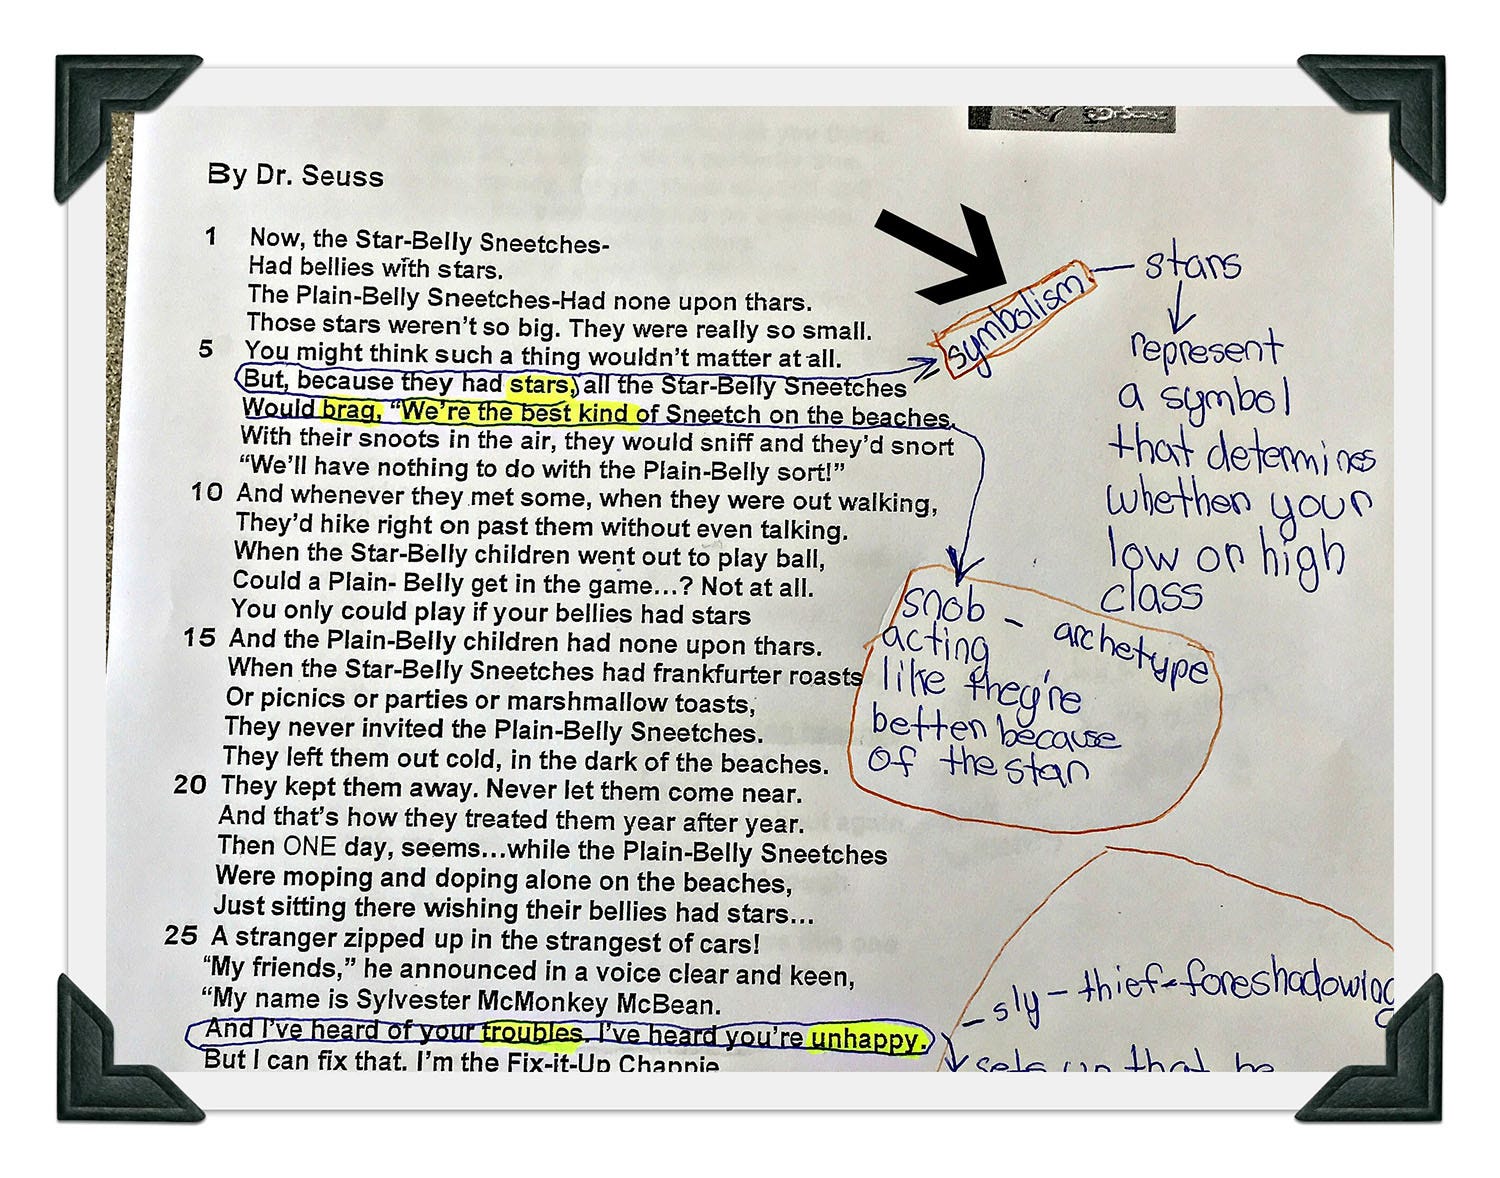 By Dr. Seuss
1 Now, the Star-Belly Sneetches-
Had bellies with stars.
The Plain-Belly Sneetches-Had none upon thars.
Those stars weren't so big. They were really so small.
5 You might think such a thing wouldn't matter at all.
But, because they had stars, all the Star-Belly Sneetches
Would brag, "We're the best kind of Sneetch on the beaches.
With their snoots in the air, they would sniff and they'd snort
"We'll have nothing to do with the Plain-Belly sort!"
10 And whenever they met some, when they were out walking,
They'd hike right on past them without even talking.
When the Star-Belly children went out to play ball,
Could a Plain- Belly get in the game...? Not at all.
You only could play if your bellies had stars
15 And the Plain-Belly children had none upon thars.
When the Star-Belly Sneetches had frankfurter roasts
Or picnics or parties or marshmallow toasts,
They never invited the Plain-Belly Sneetches.
They left them out cold, in the dark of the beaches.
20 They kept them away. Never let them come near.
And that's how they treated them year after year.
Then ONE day, seems...while the Plain-Belly Sneetches
Were moping and doping alone on the beaches,
Just sitting there wishing their bellies had stars...
25 A stranger zipped up in the strangest of cars!
"My friends," he announced in a voice clear and keen,
"My name is Sylvester McMonkey McBean.
And I've heard of your troubles. I've heard you're unhappy.
But I can fix that. I'm the Fix-it-Up Chappie
symbolism - stars
represent
a symbol
that determines
whether your
low or high
class
snob - archetype
acting
like they're
better because
of the star
- sly - thief - foreshadowing
sets up that he